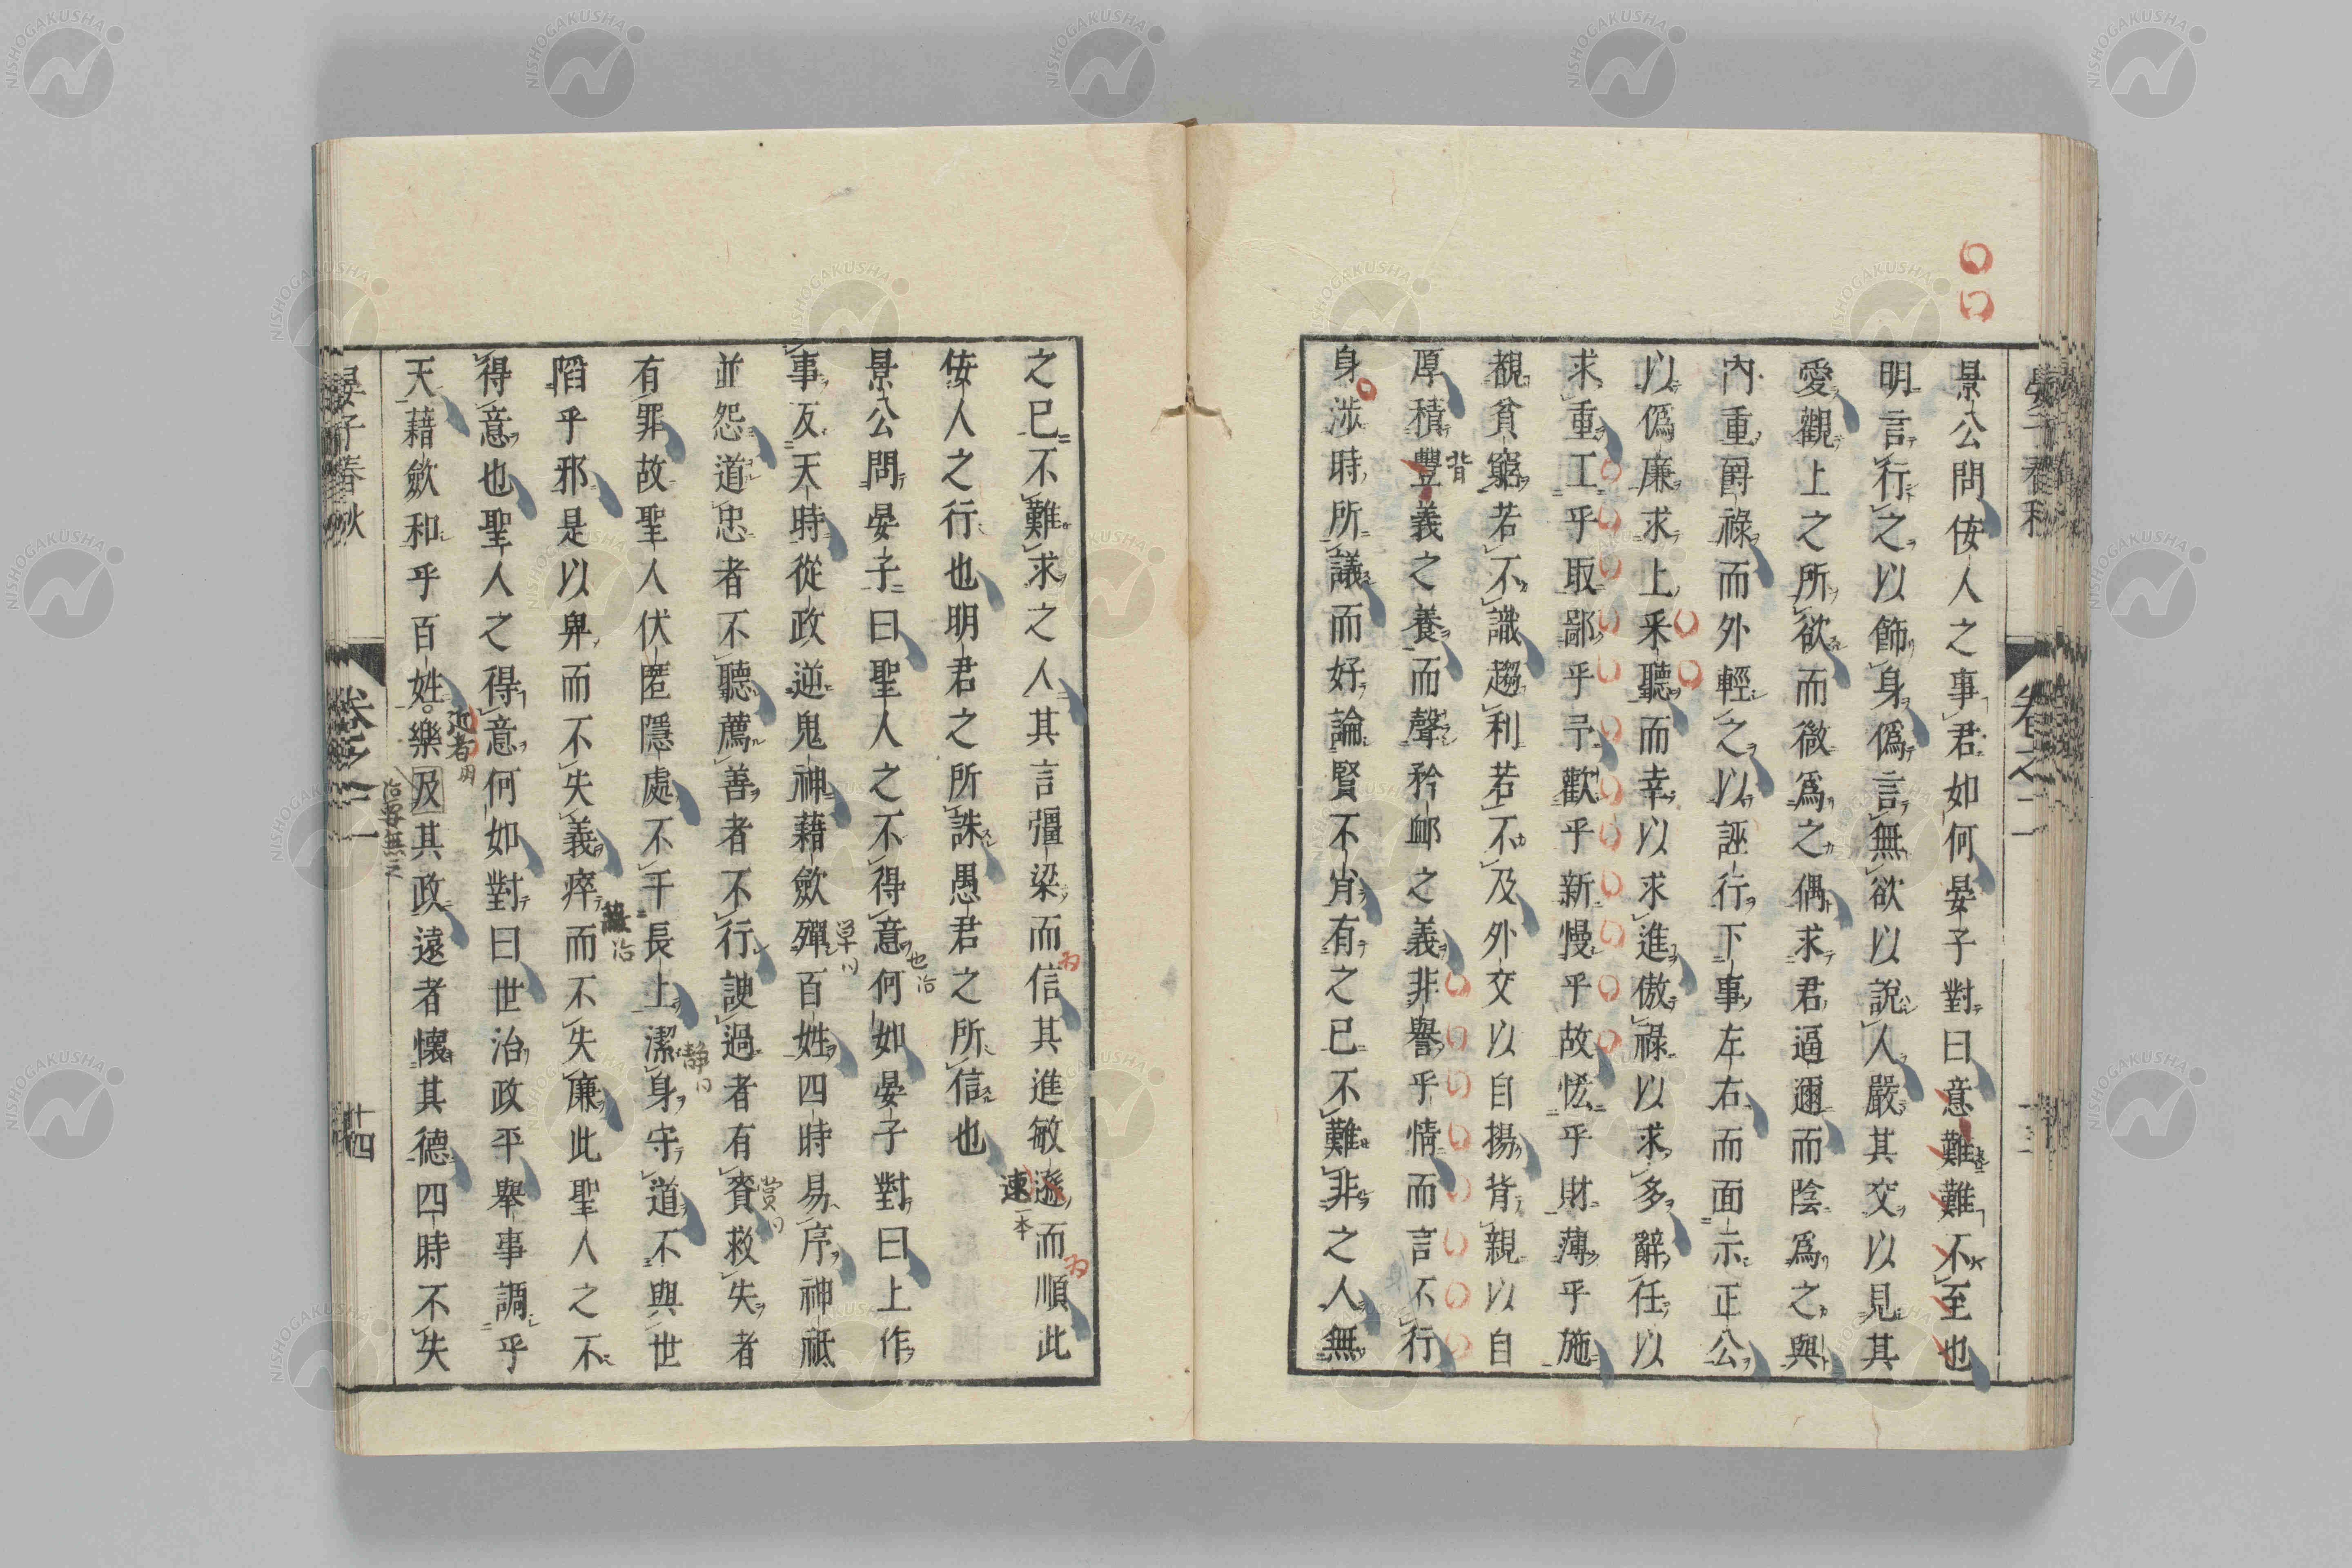 景公問侫人之事君如何晏子對曰意難難不至也
明言行之以飾身僞言無欲以說人嚴其交以見其
愛觀上之所欲而微爲之偶求君逼邇而陰爲之與
內重爵祿而外輕之以誣行下事左右而面示正公
以僞廉求上采聽而幸以求進傲祿以求多辭任以
求重工乎取鄙乎予歡乎新慢乎故恡乎財薄乎施
覩貧窮若不識趨利若不及外交以自揚背親以自
厚積豐義之養而聲矜卹之義非譽乎情而言不行
身涉時所議而好論賢不肖有之已不難非之人無
背
之已不難求之人其言彊梁而信其進敏遜而順此
侫人之行也明君之所誅愚君之所信也
速一本
景公問晏子曰聖人之不得意何如晏子對曰上作
也治
事反天時從政逆鬼神藉斂殫百姓四時易序神祗
並怨道忠者不聽薦善者不行諛過者有賚救失者
賞
有罪故聖人伏匿隱處不干長上潔身守道不與世
靜
陷乎邪是以卑而不失義瘁而不失廉此聖人之不
得意也聖人之得意何如對曰世治政平舉事調乎
天藉斂和乎百姓樂及其政遠者懷其德四時不失
近者
晏子春秋
卷之二
十四
NISHOGAKUSHA